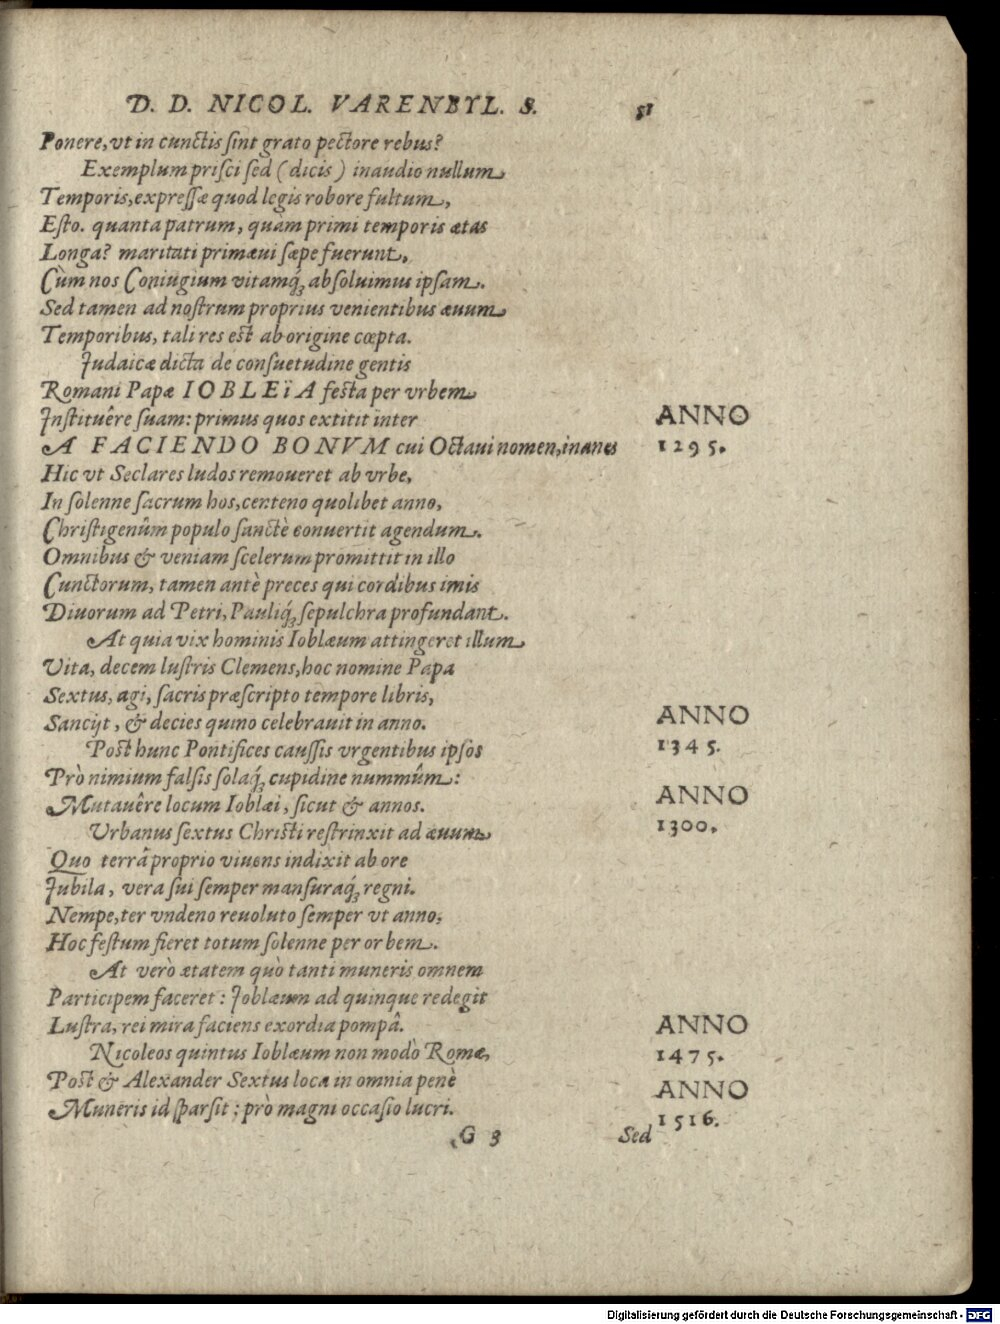 D. D. NICOL. VARENBYL. S. 51
Ponere, vt in cunctis ſint grato pectore rebus?
Exemplum priſci ſed (dicis) inaudio nullum
Temporis, expreſſæ quod legis robore fultum,
Eſto. quanta patrum, quàm primi temporis ætas
Longa? maritati primæui ſæpe fuerunt,
Cùm nos Coniugium vitamq́; abſoluimus ipſam.
Sed tamen ad noſtrum proprius venientibus æuum
Temporibus, tali res eſt ab origine cœpta.
Judaicæ dicta de conſuetudine gentis
Romani Papæ IOBLEïA feſta per vrbem
Jnſtituêre ſuam: primus quos extitit inter
A FACIENDO BONVM cui Octaui nomen, inanes
Hic vt Seclares ludos remoueret ab vrbe,
In ſolenne ſacrum hos, centeno quolibet anno,
Chriſtigenûm populo ſanctè conuertit agendum.
Omnibus & veniam ſcelerum promittit in illo
Cunctorum, tamen antè preces qui cordibus imis
Diuorum ad Petri, Pauliq́; ſepulchra profundant.
At quia vix hominis Ioblæum attingeret illum
Vita, decem luſtris Clemens, hoc nomine Papa
Sextus, agi, ſacris præſcripto tempore libris,
Sancijt, & decies quino celebrauit in anno.
Poſt hunc Pontifices cauſſis vrgentibus ipſos
Prò nimium falſis ſolaq́; cupidine nummûm:
Mutauêre locum Ioblæi, ſicut & annos.
Urbanus ſextus Chriſti reſtrinxit ad æuum
Quo terrâ proprio viuens indixit ab ore
Jubila, vera ſui ſemper manſuraq́; regni.
Nempe, ter vndeno reuoluto ſemper vt anno,
Hoc feſtum fieret totum ſolenne per orbem.
At verò ætatem quò tanti muneris omnem
Participem faceret: Joblæum ad quinque redegit
Luſtra, rei mira faciens exordia pompâ.
Nicoleos quintus Ioblæum non modò Romæ,
Poſt & Alexander Sextus loca in omnia penè
Muneris id ſparſit: prò magni occaſio lucri.
ANNO
1295.
ANNO
1345.
ANNO
1300.
ANNO
1475.
ANNO
1516.
G 3 Sed
Digitalisierung gefördert durch die Deutsche Forschungsgemeinschaft - DFG